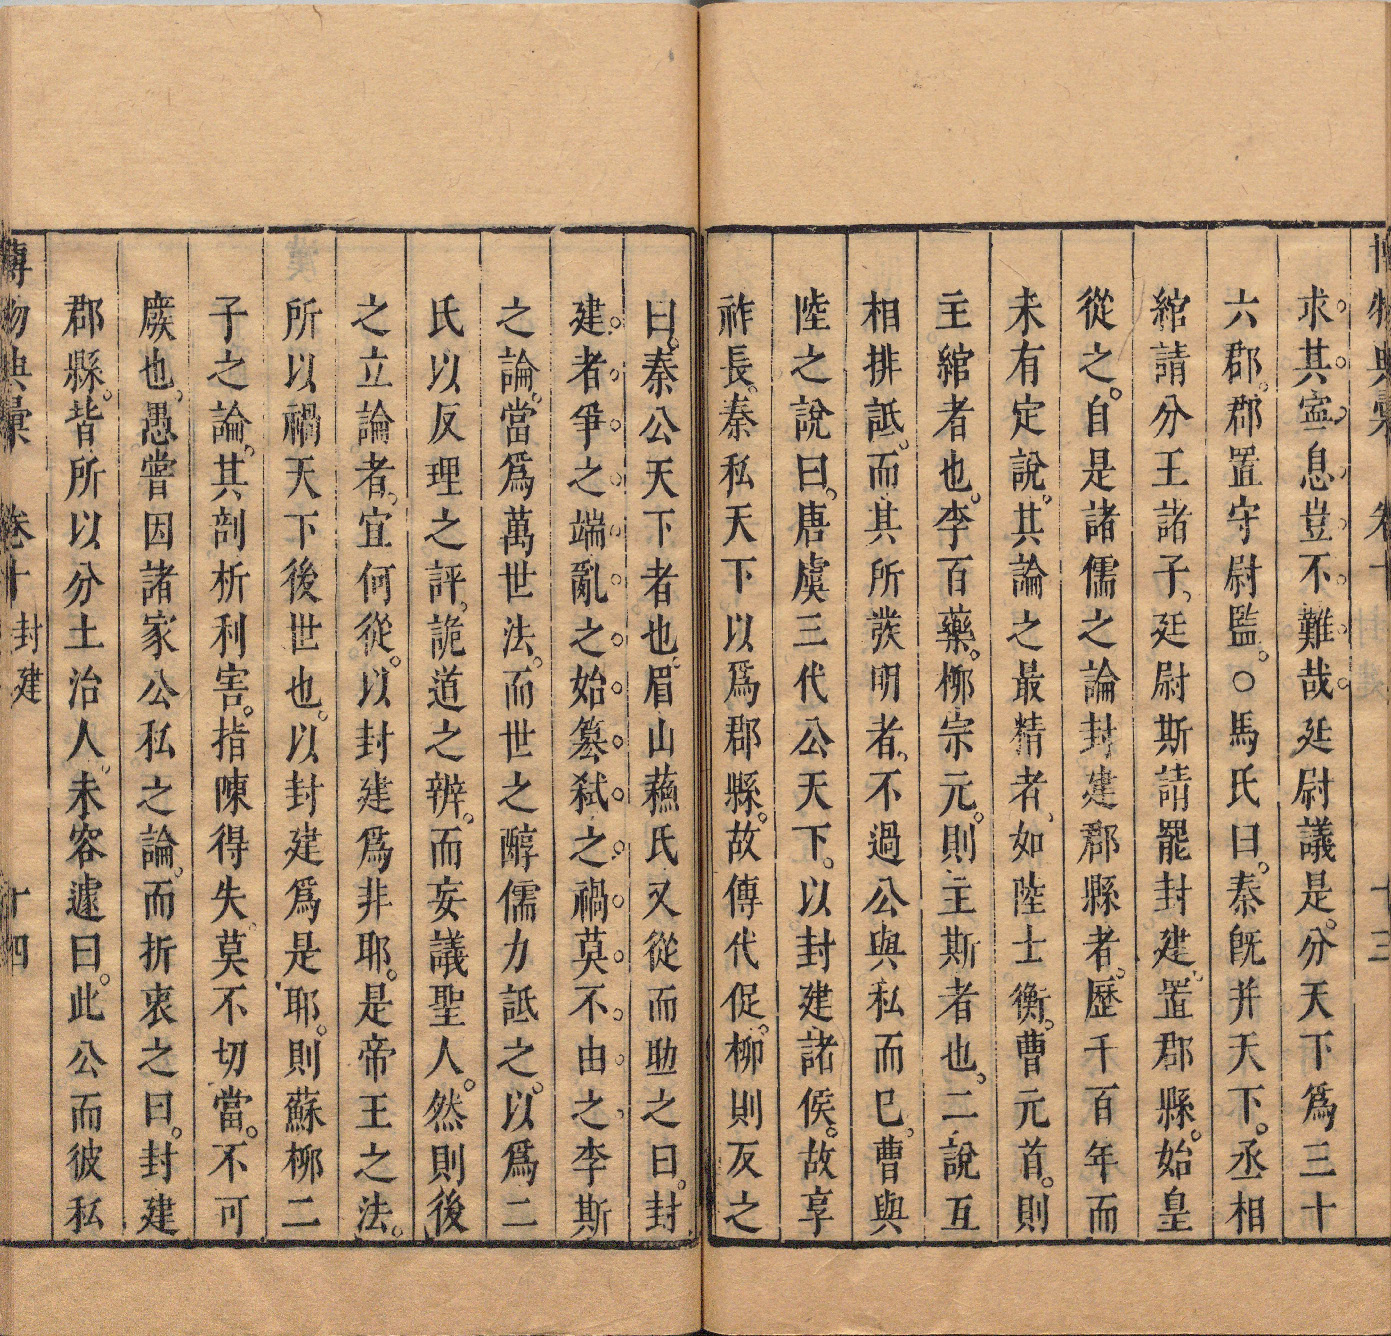 博物典彙 卷十 封建 十三
求其寧息豈不難哉廷尉議是。分天下爲三十
六郡。郡置守尉監。○馬氏曰。秦旣并天下。丞相
綰請分王諸子、廷尉斯請罷封建。置郡縣。始皇
從之。自是諸儒之論封建郡縣者。歷千百年而
未有定說。其論之最精者、如陸士衡。曹元首。則
主綰者也。李百藥。柳宗元。則主斯者也。二說互
相排詆。而其所發明者、不過公與私而已。曹與
陸之說曰。唐虞三代公天下。以封建諸侯。故享
祚長。秦私天下以爲郡縣。故傳代促。柳則反之
曰。秦公天下者也。眉山蘇氏又從而助之曰。封
建者爭之端亂之始篡弒之禍莫不由之李斯
之論。當爲萬世法。而世之醇儒力詆之。以爲二
氏以反理之評。詭道之辨。而妄議聖人。然則後
之立論者。宜何從。以封建爲非耶。是帝王之法。
所以禍天下後世也。以封建爲是耶。則蘇柳二
子之論。其剖析利害。指陳得失、莫不切當。不可
廢也。愚嘗因諸家公私之論。而折衷之曰。封建
郡縣。皆所以分土治人。未容遽曰。此公而彼私
博物典彙 卷十 封建 十四